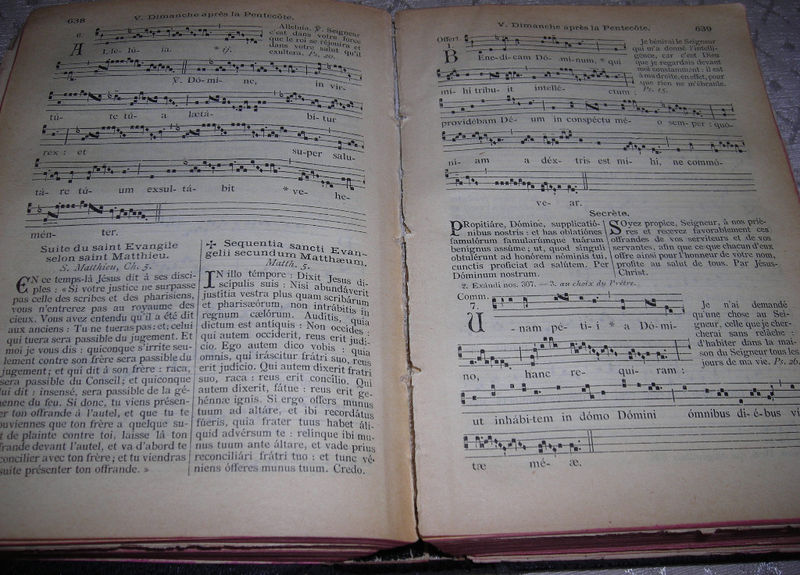 638 V. Dimanche après la Pentecôte.
6.
Alleluia, ℣. Seigneur
c'est dans votre force
que le roi se réjouira et
dans votre salut qu'il
exultera. Ps. 20.
AL-le- lú- ia. * ij.
℣. Dó-mi- ne, in vir-
tú- te tú- a lætá- bi-tur
rex: et su-per salu-
tá- re tú- um exsul-tá- bit * ve- he-
mén- ter.
Suite du saint Evangile
selon saint Matthieu.
S. Matthieu, Ch. 5.
EN ce temps-là Jésus dit à ses disci-
ples : « Si votre justice ne surpasse
pas celle des scribes et des pharisiens,
vous n'entrerez pas au royaume des
cieux. Vous avez entendu qu'il a été dit
aux anciens : Tu ne tueras pas : et celui
qui tuera sera passible du jugement. Et
moi je vous dis : quiconque s'irrite seu-
lement contre son frère sera passible du
jugement; et qui dit à son frère : raca,
sera passible du Conseil; et quiconque
lui dit : insensé, sera passible de la gé-
henne du feu. Si donc, tu viens présen-
ter ton offrande à l'autel, et que tu te
souviennes que ton frère a quelque su-
jet de plainte contre toi, laisse là ton
offrande devant l'autel, et va d'abord te
réconcilier avec ton frère; et tu viendras
ensuite présenter ton offrande. »
✠ Sequentia sancti Evan-
gelii secundum Matthæum.
Matth. 5.
IN illo témpore : Dixit Jesus di-
scípulis suis : Nisi abundáverit
justítia vestra plus quam scribárum
et pharisæórum, non intrábitis in
regnum cælórum. Audístis, quia
dictum est antíquis : Non occídes :
qui autem occíderit, reus erit judí-
cio. Ego autem dico vobis : quia
omnis, qui iráscitur frátri suo, reus
erit judício. Qui autem díxerit fratri
suo, raca : reus erit concílio. Qui
autem díxerit, fátue : reus erit ge-
hénnæ ignis. Si ergo offers munus
tuum ad altáre, et ibi recordátus
fúeris, quia frater tuus habet áli-
quid advérsum te : relínque ibi mu-
nus tuum ante áltare, et vade prius
reconciliári frátri tuo : et tunc vé-
niens ófferes munus tuum. Credo.
V. Dimanche après la Pentecôte. 639
Offert.
1.
Je bénirai le Seigneur
qui m'a donné l'intelli-
gence, car c'est Dieu
que je regardais devant
moi constamment : il est
à ma droite, en effet, pour
que rien ne m'ébranle.
Ps. 15.
BEne-di-cam Dó- mi-num, * qui
mi- hi tribu- it intellé- ctum :
providébam Dé-um in conspéctu mé- o sem-per : quó-
ni- am a déx-tris est mi- hi, ne commó-
ve- ar.
Secrète.
PRopitiáre, Dómine, supplicatió-
nibus nostris : et has oblatiónes
famulórum famularúmque tuárum
benígnus assúme; ut, quod sínguli
obtulérunt ad honórem nóminis tui,
cunctis profíciat ad salútem. Per
Dóminum nostrum.
SOyez propice, Seigneur, à nos priè-
res et recevez favorablement ces
offrandes de vos serviteurs et de vos
servantes, afin que ce que chacun d'eux
offre ainsi pour l'honneur de votre nom,
profite au salut de tous. Par Jésus-
Christ.
2. Exáudi nos. 307. — 3. au choix du Prêtre.
Comm.
7.
Je n'ai demandé
qu'une chose au Sei-
gneur, celle que je cher-
cherai sans relâche :
d'habiter dans la mai-
son du Seigneur tous les
jours de ma vie. Ps. 26.
U-nam pé-ti- i * a Dómi-
no, hanc re- quí-ram :
ut inhábi-tem in dómo Dómini ómnibus di-é-bus vi-
tæ mé- æ.